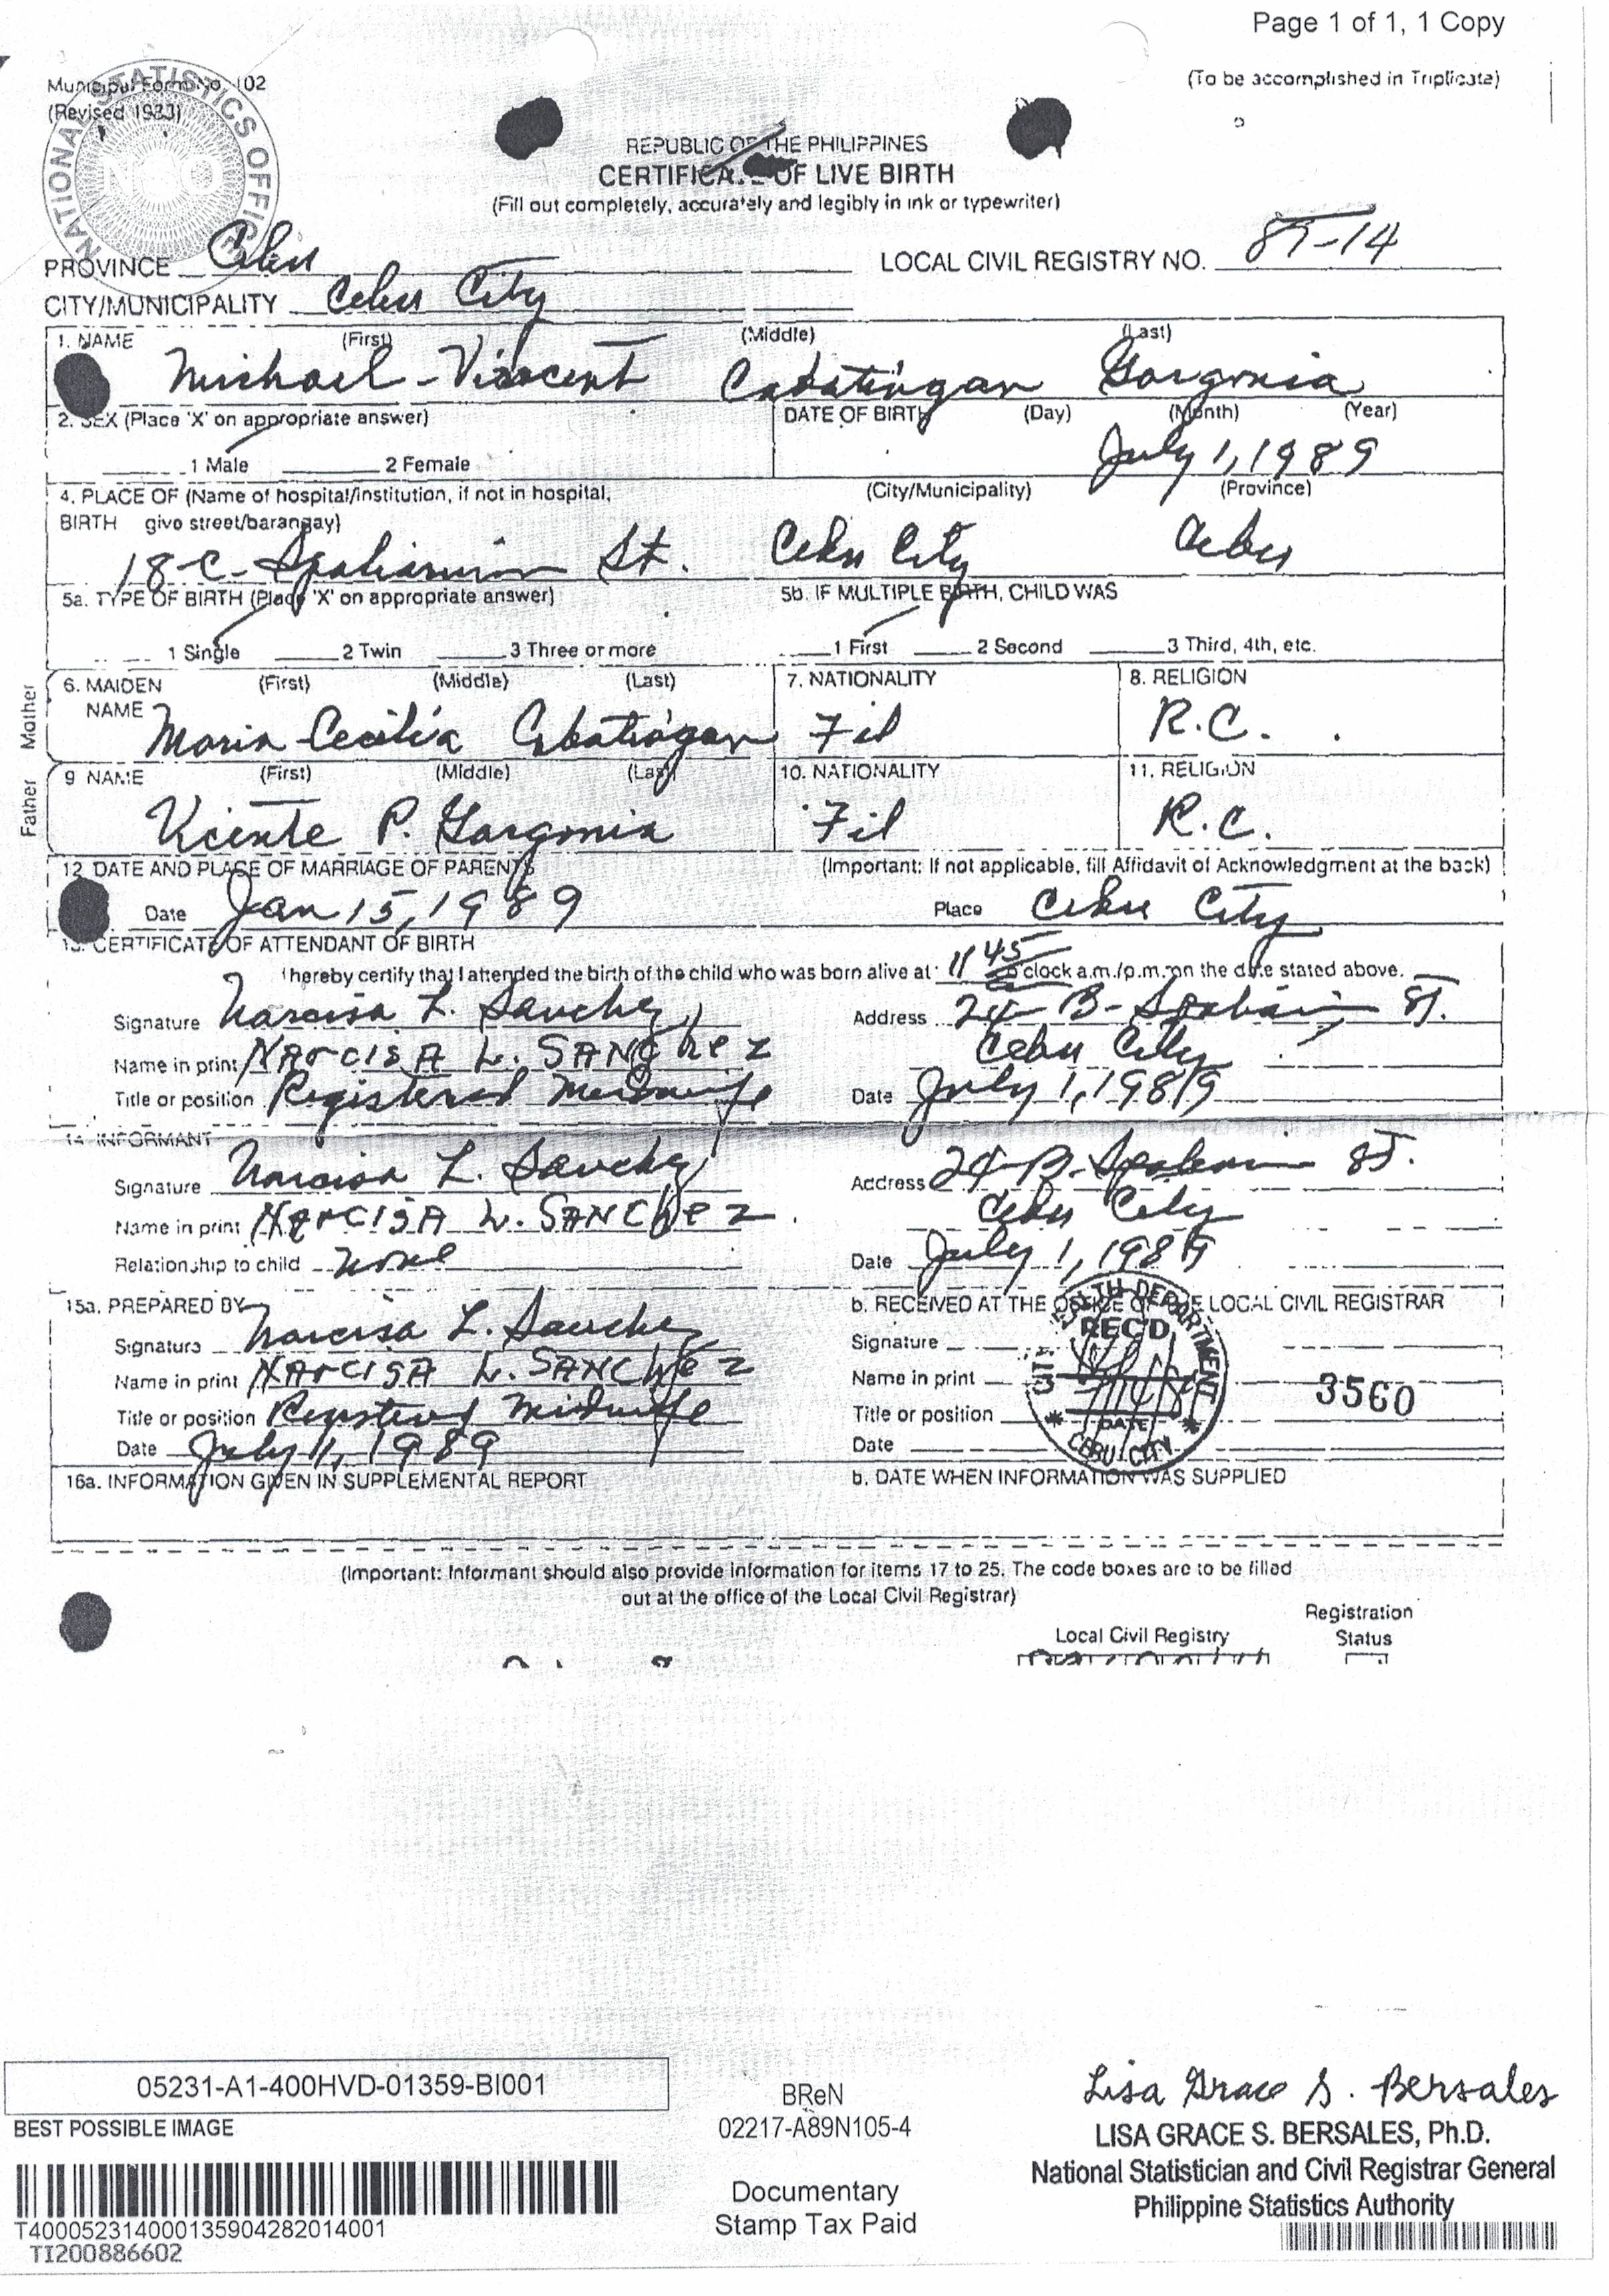 Page 1 of 1, 1 Copy
Municipal Form No. 102
(To be accomplished in Triplicate)
(Revised 1983)
NATIONAL STATISTICS OFFICE
NSO
REPUBLIC OF THE PHILIPPINES
CERTIFICATE OF LIVE BIRTH
(Fill out completely, accurately and legibly in ink or typewriter)
PROVINCE Cebu
LOCAL CIVIL REGISTRY NO. -14
CITY/MUNICIPALITY Cebu City
1. NAME (First) (Middle) (Last)
Michael-Vincent Cabatingan Gorgonia
2. SEX (Place 'X' on appropriate answer) DATE OF BIRTH (Day) (Month) (Year)
1 Male 2 Female July 1, 1989
4. PLACE OF (Name of hospital/institution, if not in hospital, (City/Municipality) (Province)
BIRTH give street/barangay)
18-C- St. Cebu City Cebu
5a. TYPE OF BIRTH (Place 'X' on appropriate answer) 5b. IF MULTIPLE BIRTH, CHILD WAS
1 Single 2 Twin 3 Three or more 1 First 2 Second 3 Third, 4th, etc.
Mother
6. MAIDEN (First) (Middle) (Last) 7. NATIONALITY 8. RELIGION
NAME
Maria Cecilia Cabatingan Fil R.C.
Father
9 NAME (First) (Middle) (Last) 10. NATIONALITY 11. RELIGION
Vicente P. Gorgonia Fil R.C.
12. DATE AND PLACE OF MARRIAGE OF PARENTS (Important: If not applicable, fill Affidavit of Acknowledgment at the back)
Date Jan 15, 1989 Place Cebu City
13. CERTIFICATE OF ATTENDANT OF BIRTH
I hereby certify that I attended the birth of the child who was born alive at 11 45 o'clock a.m./p.m. on the date stated above.
Signature Narcisa L. Sanchez Address 24-B- St.
Name in print NArcisA L. SANChez Cebu City
Title or position Registered Midwife Date July 1, 1989
14 INFORMANT
Signature Narcisa L. Sanchez Address 24-B- St.
Name in print NArCisA L. SANChez Cebu City
Relationship to child none Date July 1, 1989
15a. PREPARED BY b. RECEIVED AT THE OFFICE OF THE LOCAL CIVIL REGISTRAR
Signature Narcisa L. Sanchez Signature
Name in print NArCisA L. SANChez Name in print
Title or position Registered Midwife Title or position
Date July 11, 1989 Date
CITY HEALTH DEPARTMENT
REC'D
DATE
CEBU CITY
3560
16a. INFORMATION GIVEN IN SUPPLEMENTAL REPORT b. DATE WHEN INFORMATION WAS SUPPLIED
(Important: Informant should also provide information for items 17 to 25. The code boxes are to be filled
out at the office of the Local Civil Registrar)
Local Civil Registry Registration
Status
05231-A1-400HVD-01359-BI001
BEST POSSIBLE IMAGE
T400052314000135904282014001
TI200886602
BReN
02217-A89N105-4
Documentary
Stamp Tax Paid
Lisa Grace S. Bersales
LISA GRACE S. BERSALES, Ph.D.
National Statistician and Civil Registrar General
Philippine Statistics Authority